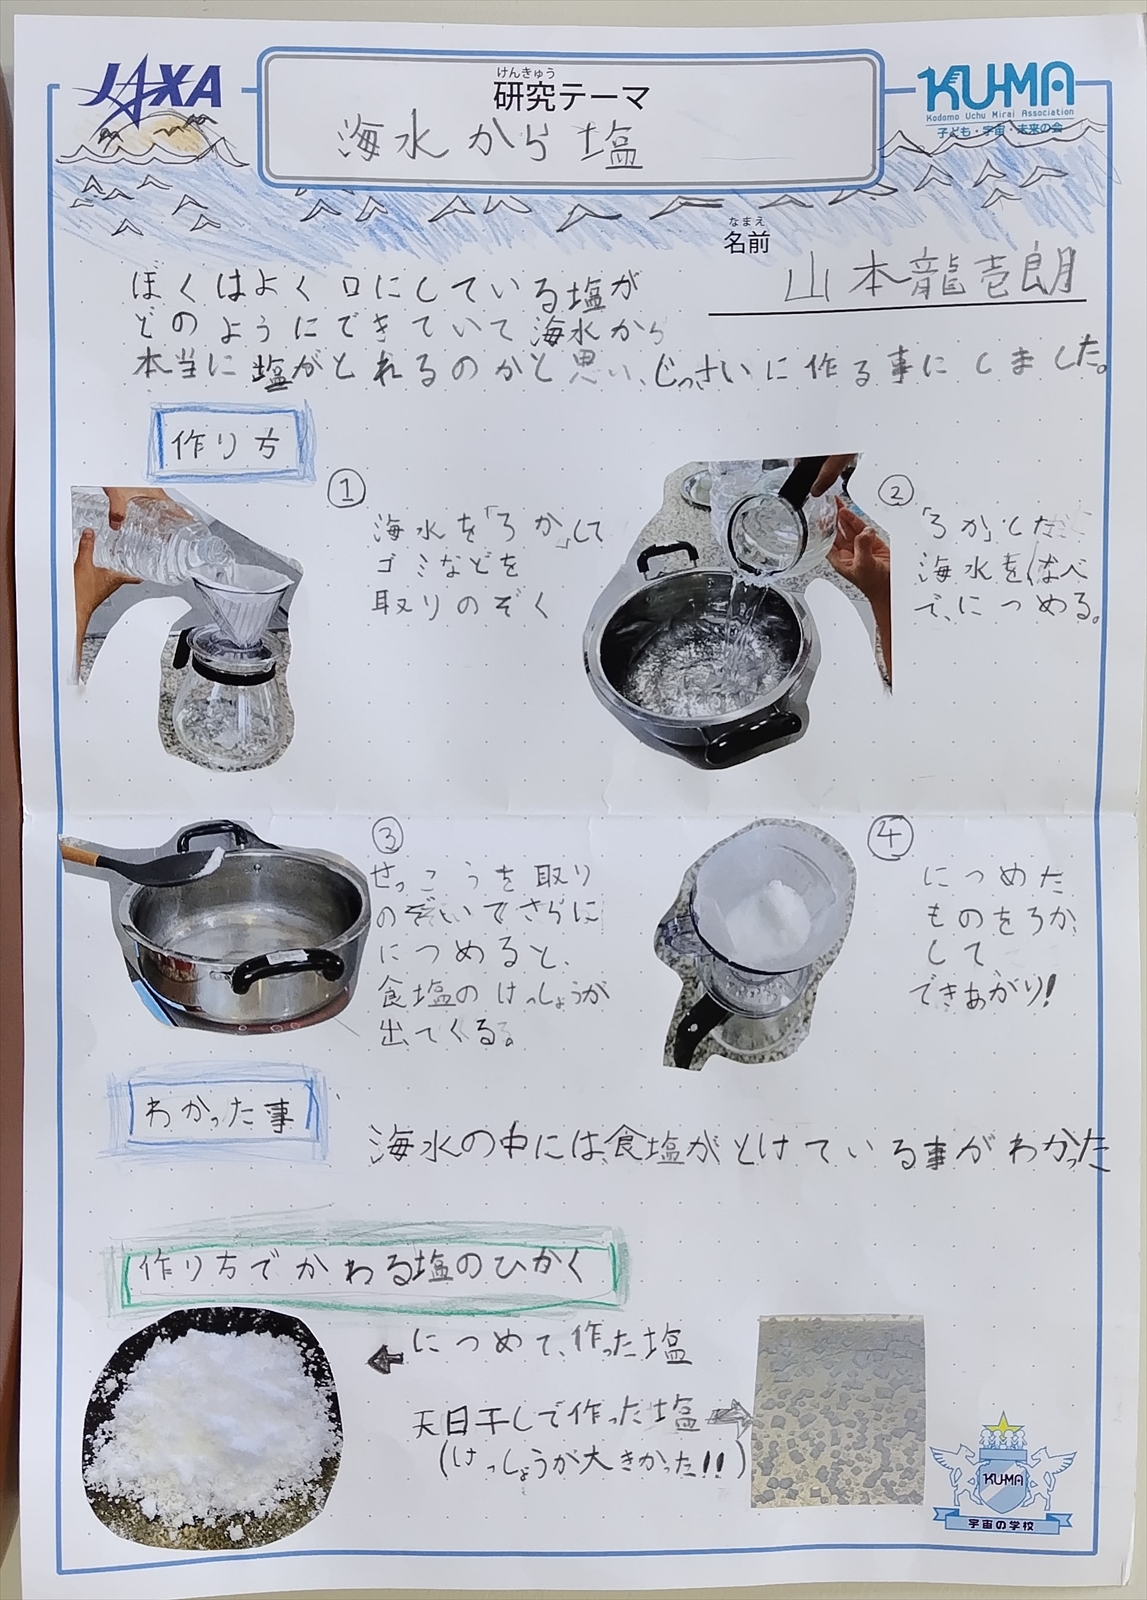 JAXA
けんきゅう
研究テーマ
海水から塩
KU-MA
Kodomo Uchu Mirai Association
子ども・宇宙・未来の会
なまえ
名前
山本龍壱朗
ぼくはよく口にしている塩が
どのようにできていて海水から
本当に塩がとれるのかと思い、じっさいに作る事にしました。
作り方
①
海水を「ろか」して
ゴミなどを
取りのぞく
②
「ろか」した
海水をなべ
で、につめる。
③
せっこうを取り
のぞいてさらに
につめると、
食塩のけっしょうが
出てくる。
④
につめた
ものをろか
して
できあがり!
わかった事
海水の中には、食塩がとけている事がわかった
作り方でかわる塩のひかく
につめて、作った塩
天日干しで作った塩
(けっしょうが大きかった!!)
KU-MA
宇宙の学校